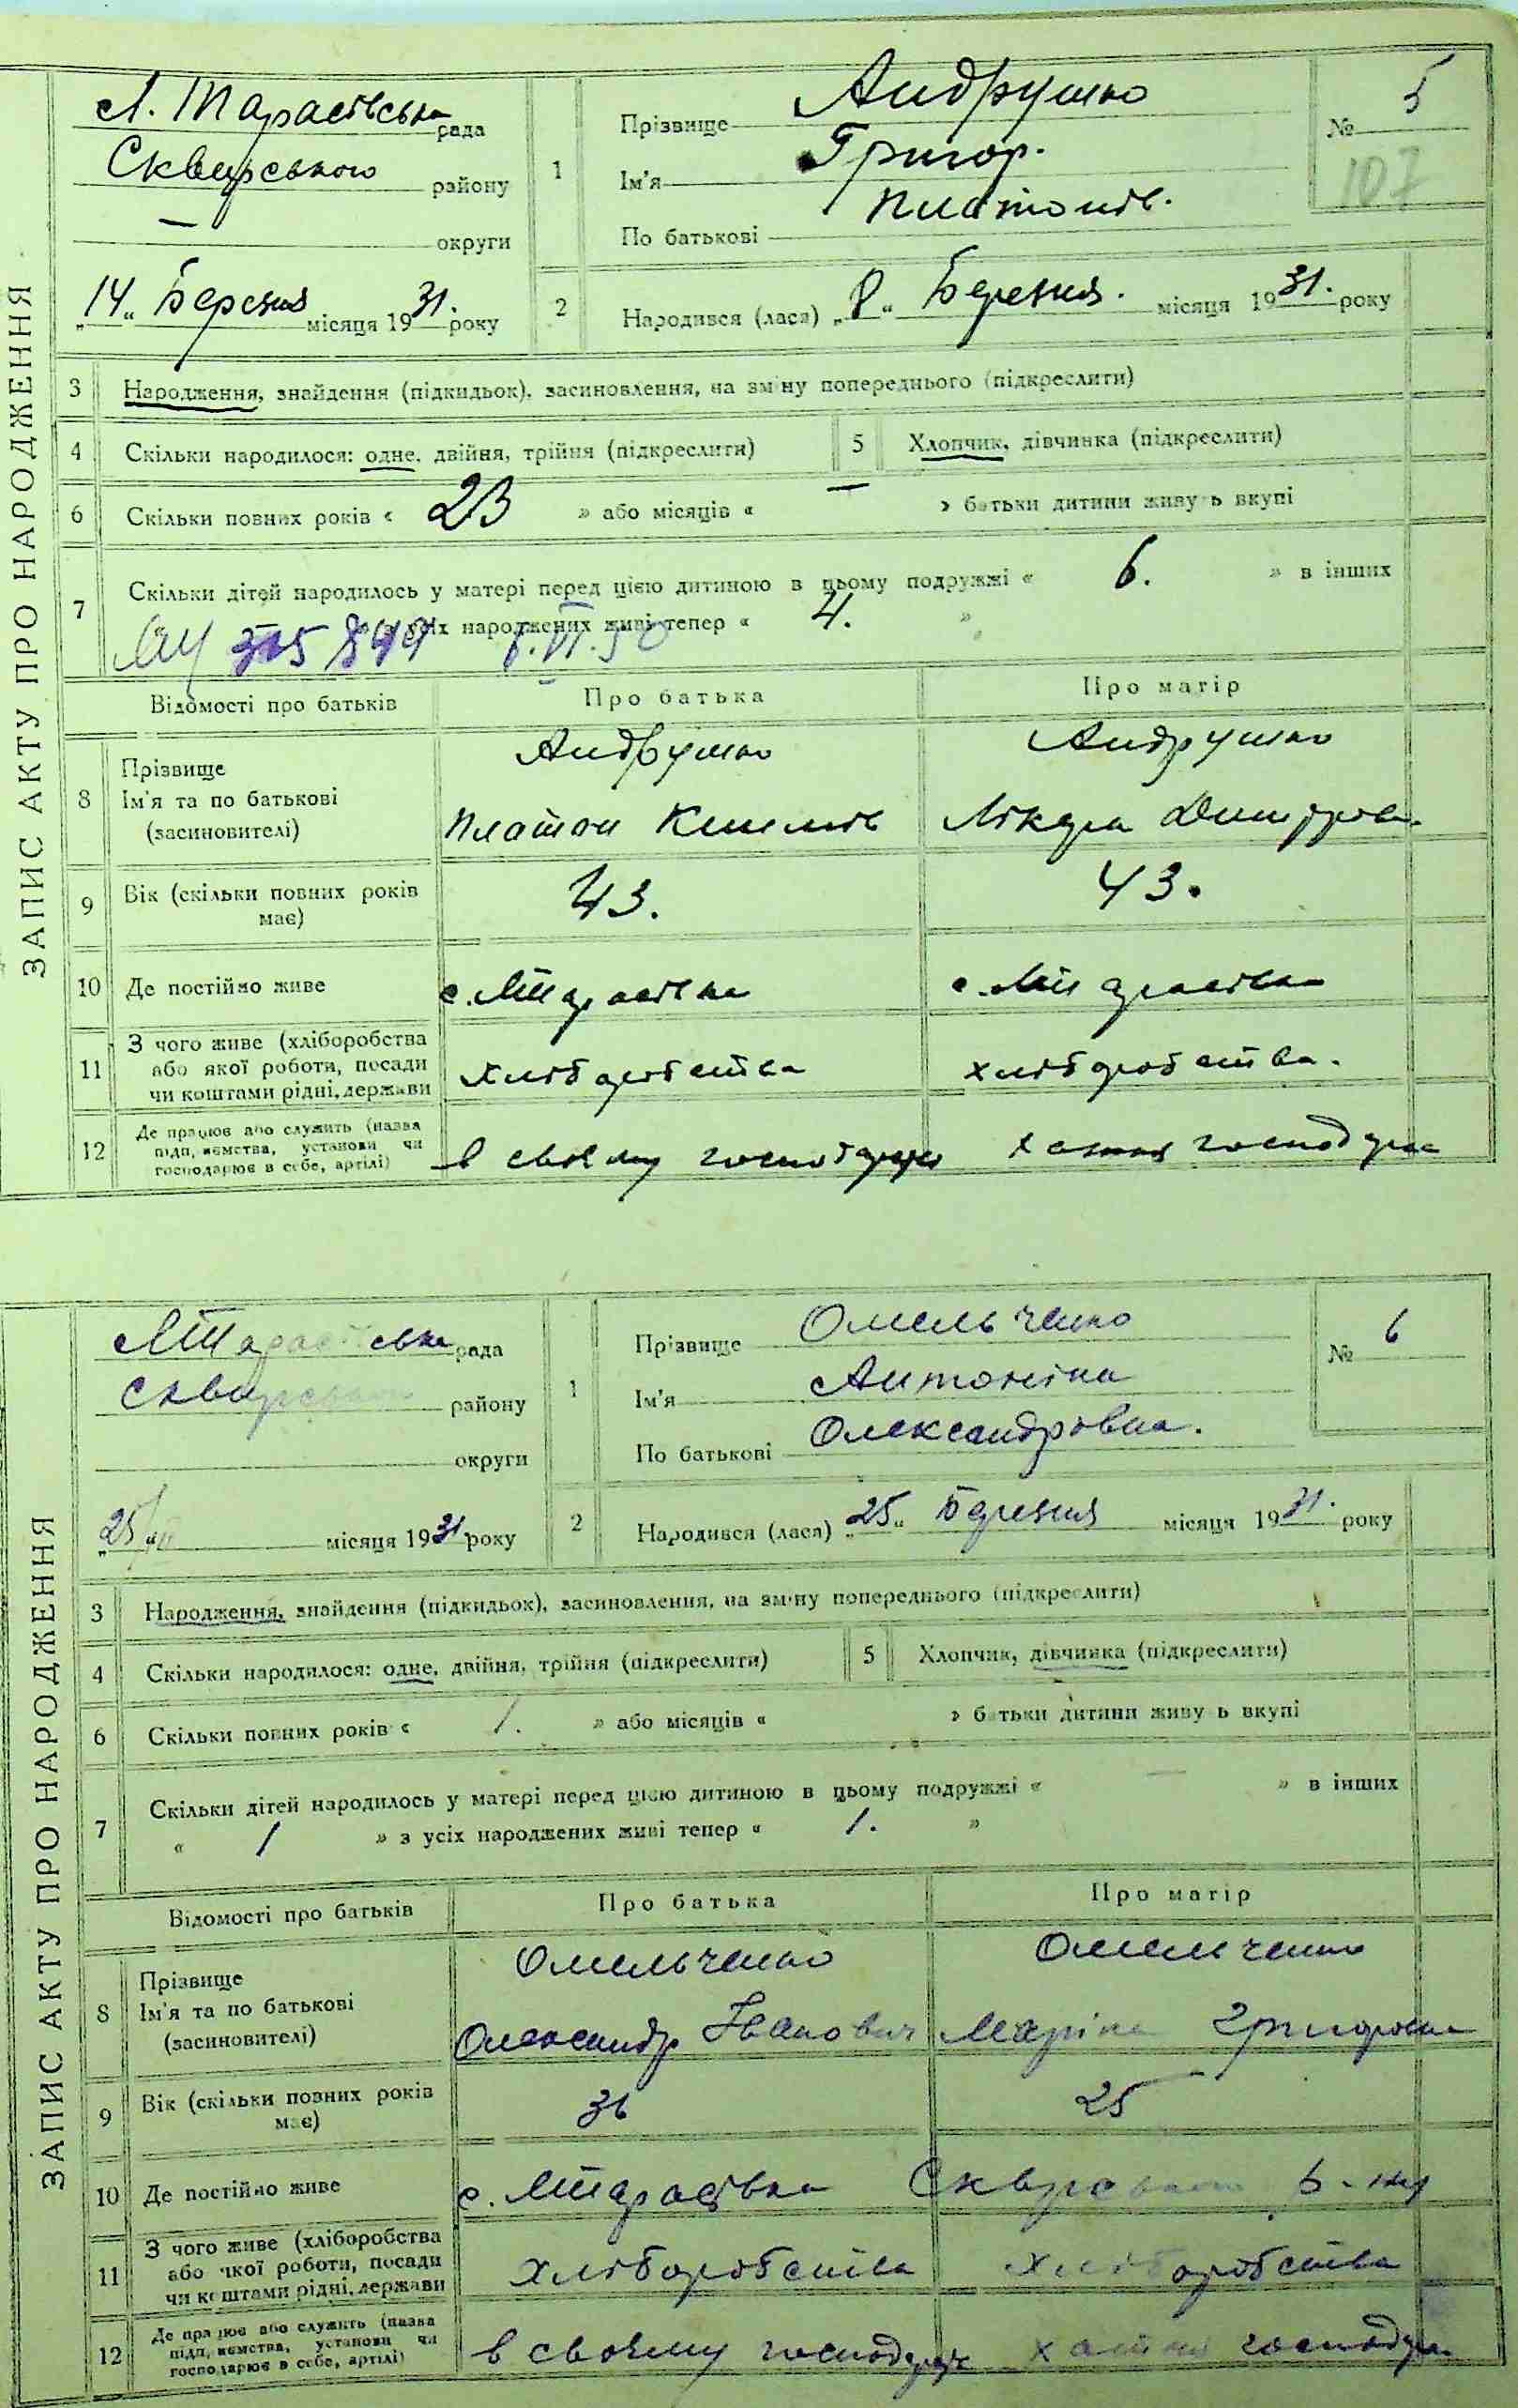 ЗАПИС АКТУ ПРО НАРОДЖЕННЯ
Л. Тарасівська рада
Сквирського району
— округи
„14“ Березня місяця 1931. року
1 Прізвище Андрушко
Ім'я Григор.
По батькові Платонів.
№ 5
107
2 Народився (лася) „8“ Березня. місяця 1931. року
3 Народження, знайдення (підкидьок), засиновлення, на зміну попереднього (підкреслити)
4 Скільки народилося: одне, двійня, трійня (підкреслити) 5 Хлопчик, дівчинка (підкреслити)
6 Скільки повних років « 23 » або місяців « — » батьки дитини живуть вкупі
7 Скільки дітей народилось у матері перед цією дитиною в цьому подружжі « 6. » в інших
з усіх народжених живі тепер « 4. »
Відомості про батьків Про батька Про матір
8 Прізвище Андрушко Андрушко
Ім'я та по батькові Платон
(засиновителі)
9 Вік (скільки повних років має) 43. 43.
10 Де постійно живе с. Л Тарасівка с. Л Тарасівка
11 З чого живе (хліборобства або якої роботи, посади чи коштами рідні, держави хліборобства хліборобства.
12 Де працює або служить (назва підприємства, установи чи господарює в себе, артілі) в своєму господарст хатня господарка
ЗАПИС АКТУ ПРО НАРОДЖЕННЯ
Л Тарасівська рада
Сквирського району
округи
„25 місяця 1931 року
1 Прізвище Омельченко
Ім'я Антоніна
По батькові Олександровна.
№ 6
2 Народився (лася) „25“ Березня місяця 1931. року
3 Народження, знайдення (підкидьок), засиновлення, на зміну попереднього (підкреслити)
4 Скільки народилося: одне, двійня, трійня (підкреслити) 5 Хлопчик, дівчинка (підкреслити)
6 Скільки повних років « 1. » або місяців « » батьки дитини живуть вкупі
7 Скільки дітей народилось у матері перед цією дитиною в цьому подружжі « — » в інших
« 1 » з усіх народжених живі тепер « 1. »
Відомості про батьків Про батька Про матір
8 Прізвище Омельченко Омельченко
Ім'я та по батькові Олександр Іванович Маріна Григоровна
(засиновителі)
9 Вік (скільки повних років має) 36 25
10 Де постійно живе с. Л Тарасівка Сквирського р-ну
11 З чого живе (хліборобства або якої роботи, посади чи коштами рідні, держави хліборобства хліборобства
12 Де працює або служить (назва підприємства, установи чи господарює в себе, артілі) в своєму господарст хатня господарка